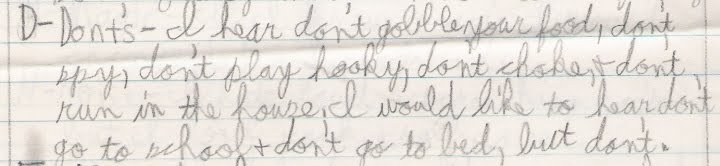 D-Dont's-I hear don't gobble your food, dont
spy, don't play hooky, dont choke, + don't
run in the house, I would like to hear don't
go to school + don't go to bed, but dont.